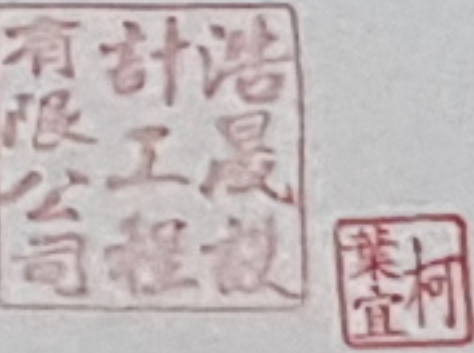 浩晟設
計工程
有限公司
柯
葉宜